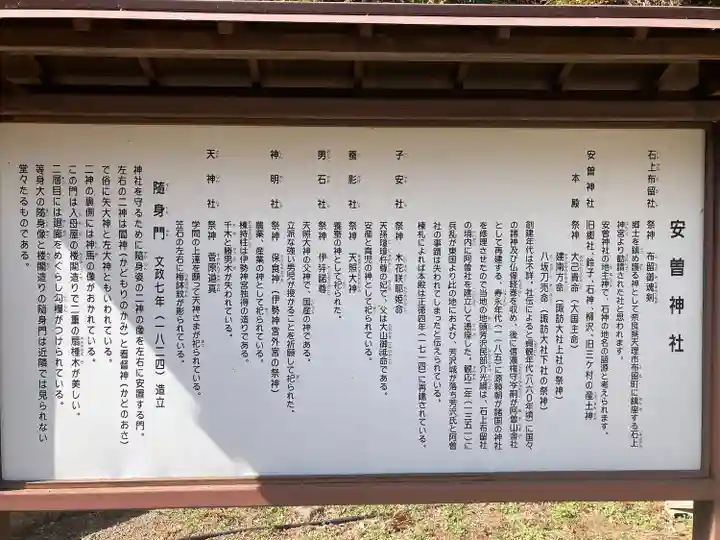 安曽神社
石上布留社　祭神　布留御魂剣
郷土を鎮め護る神として奈良県天理市布留町に鎮座する石上
神宮より勧請された社と思われます。
安曽神社の地主神で、石神の地名の語源と考えられます。
安曽神社　旧郷社、鈴子・石神・柳沢、旧三ケ村の産土神
本殿　祭神　大己貴命（大国主命）
建南方命（諏訪大社上社の祭神）
八坂刀売命（諏訪大社下社の祭神）
創建年代は不詳、社伝によると貞観年代（八六〇年頃）に国々
の諸神及び仏像経巻を収め、後に信濃権守字嗣が阿曽山舎社
として再建する。寿永年代（一一八五）に源頼朝が諸国の神社
を修理させたので当地の地頭芳沢民部介光綱は、石上布留社
の境内に阿曽社を建立して遷座した。観応二年（一三五一）に
兵乱が東国より此の地におよび、芳沢城が落ち芳沢氏と阿曽
社の事蹟は失われてしまったと伝えられている。
棟札によれば本殿は正徳四年（一七一四）に再建されている。
子安社　祭神　木花咲耶姫命
天孫瓊瓊杵尊の妃で、父は大山御祇命である。
安産と育児の神として祀られている。
蚕影社　祭神　天照大神
養蚕の神として祀られた。
男石社　祭神　伊弉諾尊
天照大神の父神で、国産の神である。
立派な強い男児が授かることを祈願して祀られた。
神明社　祭神　保食神（伊勢神宮外宮の祭神）
農業、産業の神として祀られている。
棟持柱は伊勢神宮独得の造りである。
千木と勝男木が失われている。
天神社　祭神　菅原道真
学問の上達を願って天神さまが祀られている。
笠石の左右に梅鉢紋が彫られている。
随身門　文政七年（一八二四）造立
神社を守るために随身姿の二神の像を左右に安置する門。
左右の二神は門神（かどもりのかみ）と看督神（かどのおさ）
で俗に矢大神と左大神ともいわれている。
二神の裏側には神馬の像がおかれている。
この門は入母屋の楼閣造りで二重の扇棰木が美しい。
二層目には廻廊をめぐらし勾欄がつけられている。
等身大の随身像と楼閣造りの随身門は近隣では見られない
堂々たるものである。